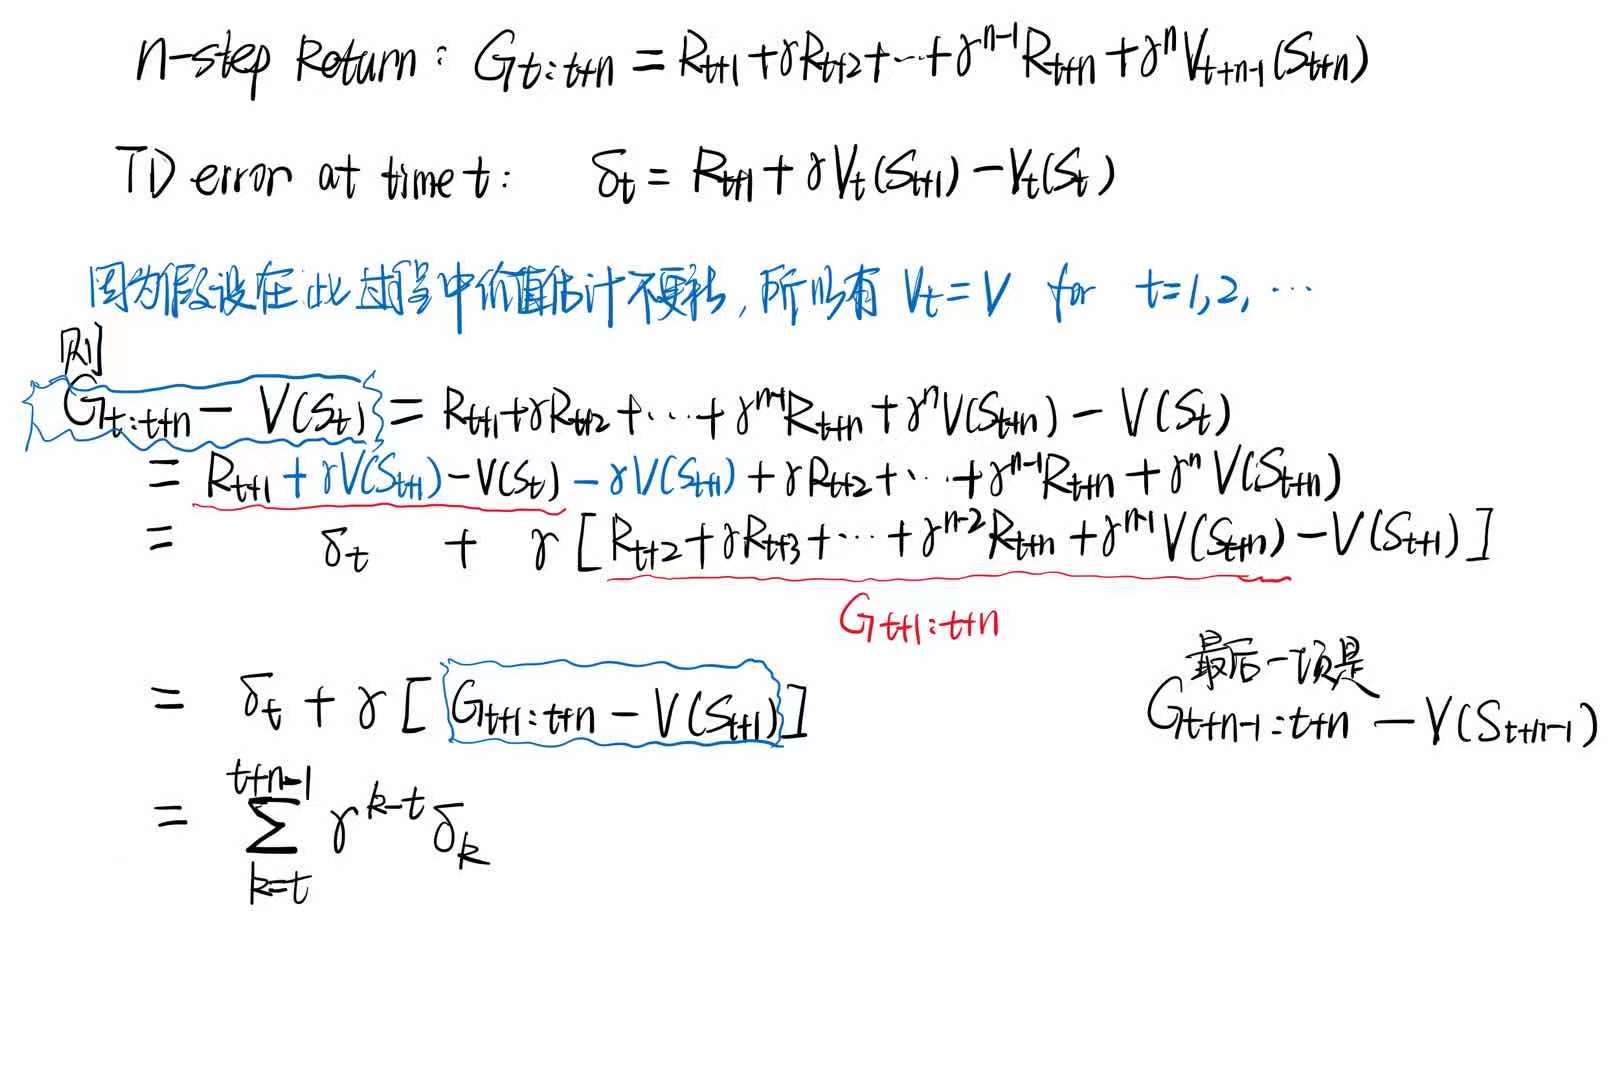 n-step Return: G_{t:t+n} = R_{t+1} + γR_{t+2} + ··· + γ^{n-1}R_{t+n} + γ^n V_{t+n-1}(S_{t+n})
TD error at time t: δ_t = R_{t+1} + γV_t(S_{t+1}) - V_t(S_t)
因为假设在此过程中价值估计不更新, 所以有 V_t = V for t=1,2, ···
则
G_{t:t+n} - V(S_t) = R_{t+1} + γR_{t+2} + ··· + γ^{n-1}R_{t+n} + γ^n V(S_{t+n}) - V(S_t)
= R_{t+1} + γV(S_{t+1}) - V(S_t) - γV(S_{t+1}) + γR_{t+2} + ··· + γ^{n-1}R_{t+n} + γ^n V(S_{t+n})
= δ_t + γ[R_{t+2} + γR_{t+3} + ··· + γ^{n-2}R_{t+n} + γ^{n-1}V(S_{t+n}) - V(S_{t+1})]
G_{t+1:t+n}
最后一项是
G_{t+n-1:t+n} - V(S_{t+n-1})
= δ_t + γ[G_{t+1:t+n} - V(S_{t+1})]
= ∑_{k=t}^{t+n-1} γ^{k-t} δ_k